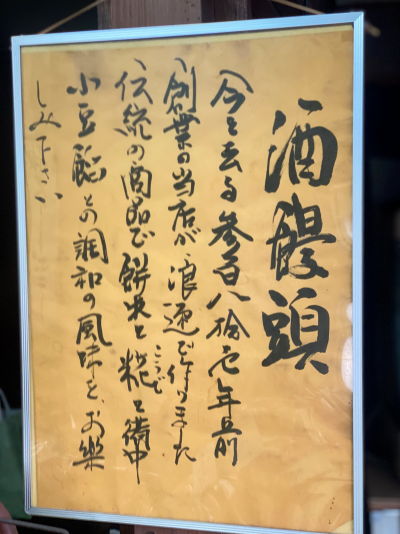 酒饅頭
今を去る参百八拾壱年前
創業の当店が浪速で作りました
伝統の商品で餅米と糀と備中
こうじ
小豆餡との調和の風味を、お楽
しみ下さい